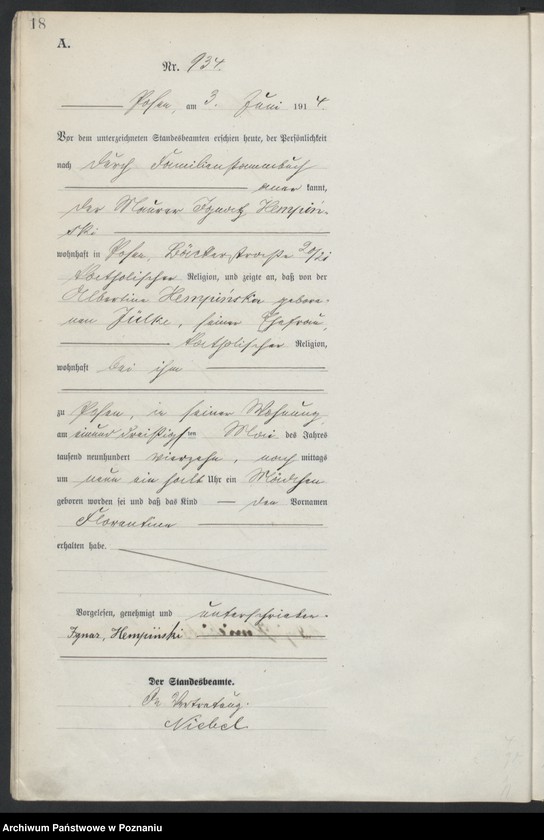 18
A.
Nr. 934.
Posen, am 3. Juni 1914.
Vor dem unterzeichneten Standesbeamten erschien heute, der Persönlichkeit
nach durch Familienstammbuch
aner kannt,
der Maurer Ignatz Hempiń-
ski
wohnhaft in Posen, Bäckerstraße 20/21
katholischer Religion, und zeigte an, daß von der
Albertine Hempińska gebore-
nen Jülke, seiner Ehefrau,
katholischer Religion,
wohnhaft bei ihm
zu Posen, in seiner Wohnung
am einunddreißigsten Mai des Jahres
tausend neunhundert vierzehn, nach mittags
um neun ein halb Uhr ein Mädchen
geboren worden sei und daß das Kind den Vornamen
Florentine
erhalten habe.
Vorgelesen, genehmigt und unterschrieben.
Ignaz, Hempiński
Der Standesbeamte.
In Vertretung.
Niebel
Archiwum Państwowe w Poznaniu